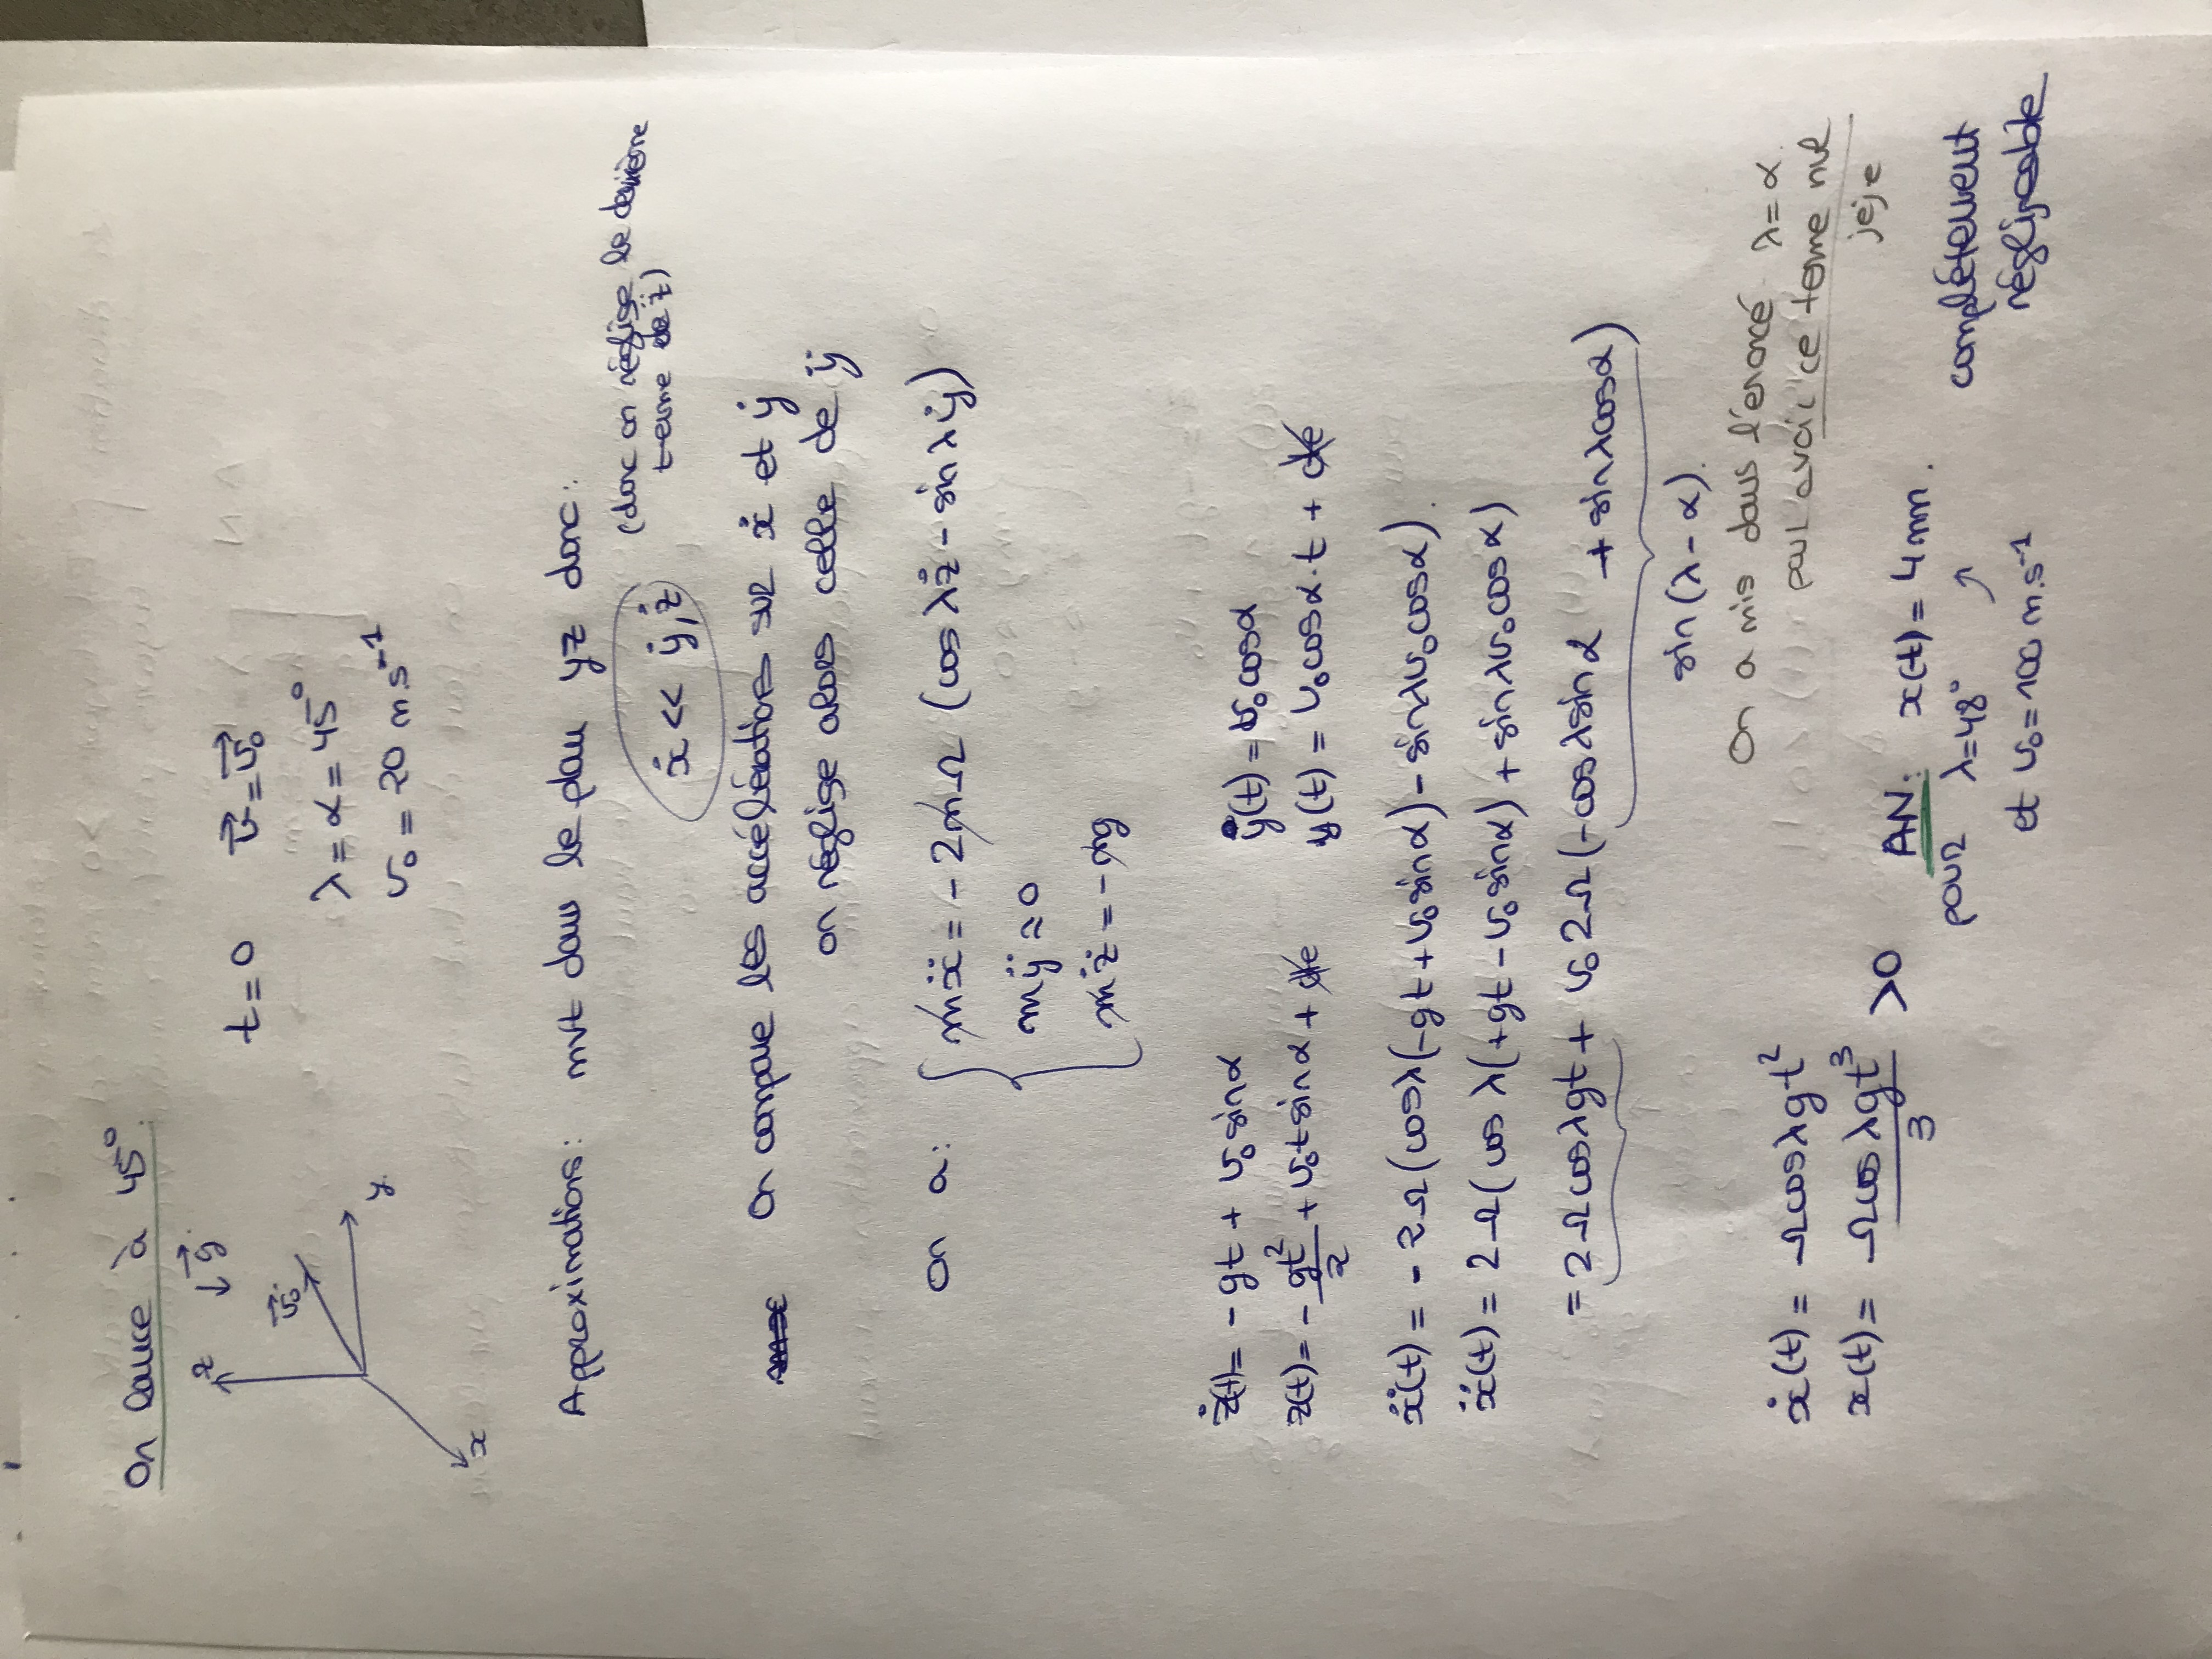 On lance à 45°.
z ↓ g⃗
v⃗₀
y
x
t = 0 v⃗ = v⃗₀
λ = α = 45°
v₀ = 20 m.s⁻¹
Approximations : mvt dans le plan yz donc :
ẋ << ẏ, ż (donc on néglige le deuxième
terme de z̈)
On compare les accélérations sur ẋ et ẏ
on néglige alors celle de ÿ
On a : { mẍ = - 2mΩ (cos λ ż - sin λ ẏ)
mÿ ≈ 0
mz̈ = - mg
ż(t) = - gt + v₀ sin α ẏ(t) = v₀ cos α
z(t) = - gt²/2 + v₀ t sin α + cte y(t) = v₀ cos α . t + cte
ẍ(t) = - 2Ω (cos λ (-gt + v₀ sin α) - sin λ v₀ cos α).
ẍ(t) = 2Ω (cos λ (+gt - v₀ sin α) + sin λ v₀ cos α)
= 2Ω cos λ gt + v₀ 2Ω (-cos λ sin α + sin λ cos α)
sin (λ - α).
On a mis dans l'énoncé λ = α.
pour avoir ce terme nul
jeje
ẋ(t) = Ω cos λ gt²
x(t) = Ω cos λ gt³/3 > 0
AN : x(t) = 4 mm.
pour λ = 48° ↗
et v₀ = 100 m.s⁻¹
complétement
négligeable